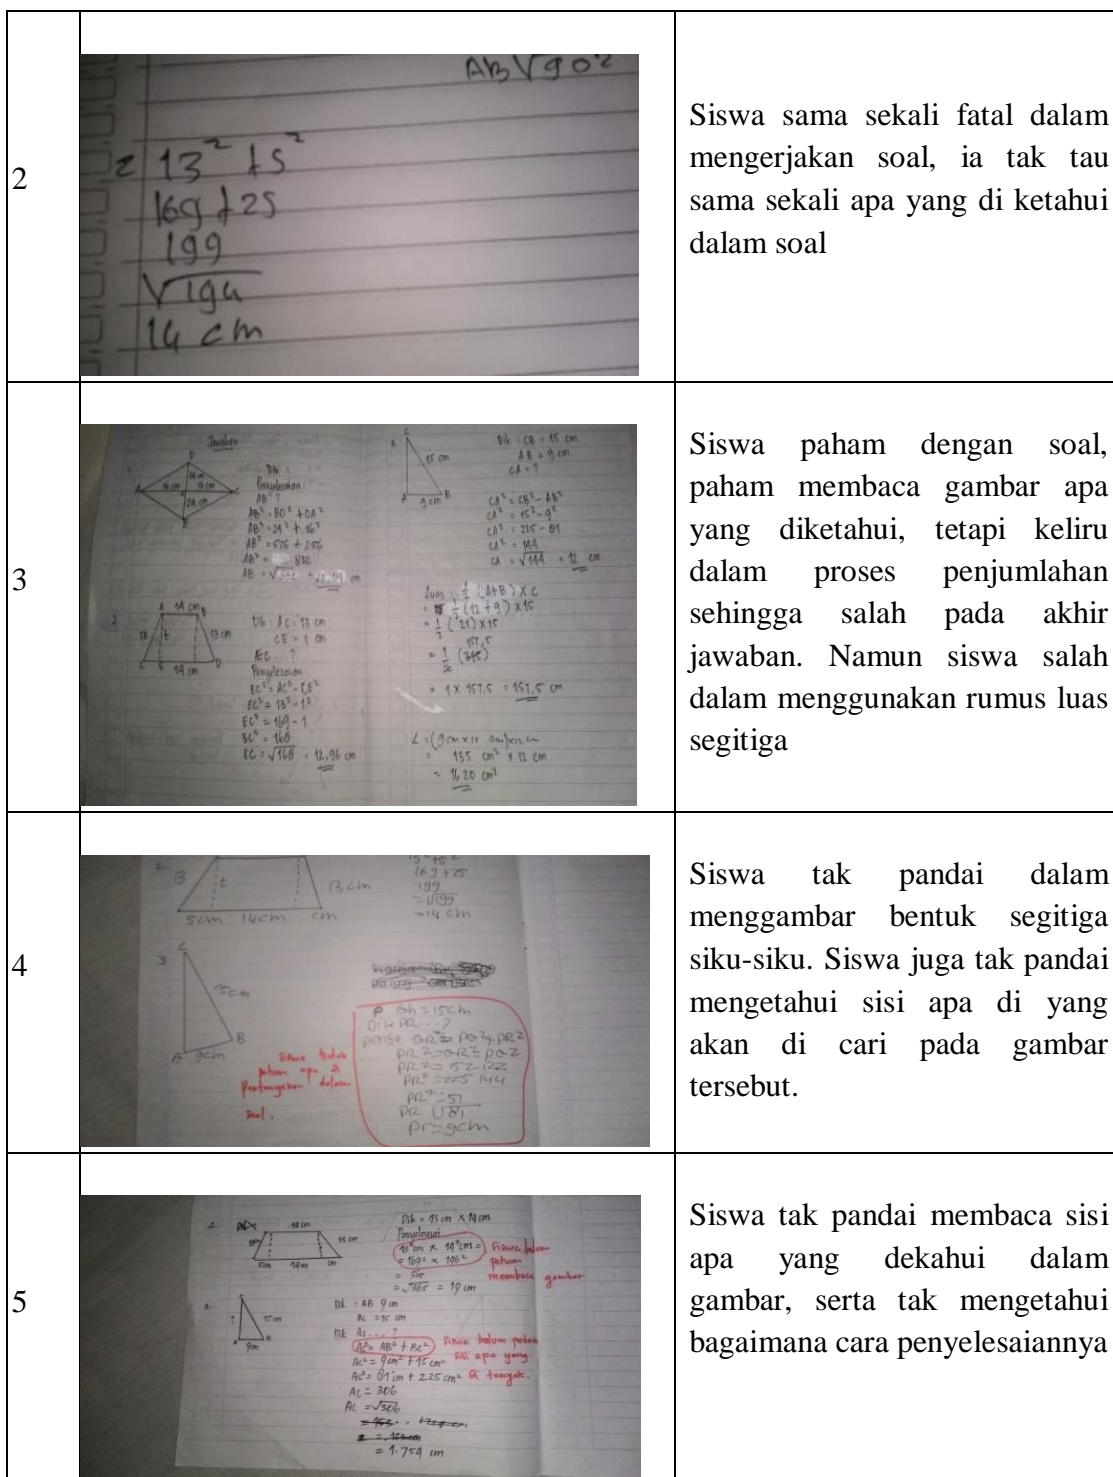 2
AB√90²
= 13² + 5²
169 + 25
199
√194
14 cm
Siswa sama sekali fatal dalam
mengerjakan soal, ia tak tau
sama sekali apa yang di ketahui
dalam soal
3
Jawaban
1.
D
24 cm
16 cm 16 cm
A C
24 cm
B
Dik :
Penyelesaian :
AB = ?
AB² = BO² + OA²
AB² = 24² + 16²
AB² = 576 + 256
AB² = 832
AB = cm
2.
A 14 cm B
t
13 cm
C E D
14 cm
Dik : AC = 13 cm
CE = 1 cm
EC ... ?
Penyelesaian
EC² = AC² - CE²
EC² = 13² - 1²
EC² = 169 - 1
EC² = 168
EC = √168 = 12,96 cm
3.
C
15 cm
A 9 cm B
Dik : CB = 15 cm
AB = 9 cm
CA = ?
CA² = CB² - AB²
CA² = 15² - 9²
CA² = 225 - 81
CA² = 144
CA = √144 = 12 cm
Luas : ½ (A+B) x C
= ½ (12 + 9) x 15
= ½ (21) x 15
157,5
= ½ (315)
= 1 x 157,5 = 157,5 cm
= 135 cm² x 12 cm
= 1620 cm²
Siswa paham dengan soal,
paham membaca gambar apa
yang diketahui, tetapi keliru
dalam proses penjumlahan
sehingga salah pada akhir
jawaban. Namun siswa salah
dalam menggunakan rumus luas
segitiga
4
2.
t
13 cm
5cm 14cm cm
169 + 25
199
= √199
= 14 cm
3
C
15cm
A 9cm B
Siswa belum
paham apa di
Pertanyakan dalam
soal.
Gh = 15cm
Dik PR...?
QR² = PQ² + PR²
PR² = QR² PQ²
PR² = 152-122
PR² = 225 144
PR² = 51
PR √81
Pr = 9cm
Siswa tak pandai dalam
menggambar bentuk segitiga
siku-siku. Siswa juga tak pandai
mengetahui sisi apa di yang
akan di cari pada gambar
tersebut.
5
2.
14 cm
13 cm
5cm 14cm cm
Dik = 13 cm x 14 cm
Penyelesaian
13²cm x 14²cm =
= 169² x 196²
= √365 = 19 cm
Siswa belum
paham
membaca gambar
3.
C
? 15 cm
A B
9m
Dik : AB 9 cm
BC = 15 cm
Dit AC ... ?
AC² = AB² + BC²
AC² = 9cm² + 15 cm²
AC² = 81 cm + 225 cm²
AC = 306
AC = √306
= 1.754 cm
Siswa belum paham
sisi apa yang
di tanyak.
Siswa tak pandai membaca sisi
apa yang dekahui dalam
gambar, serta tak mengetahui
bagaimana cara penyelesaiannya